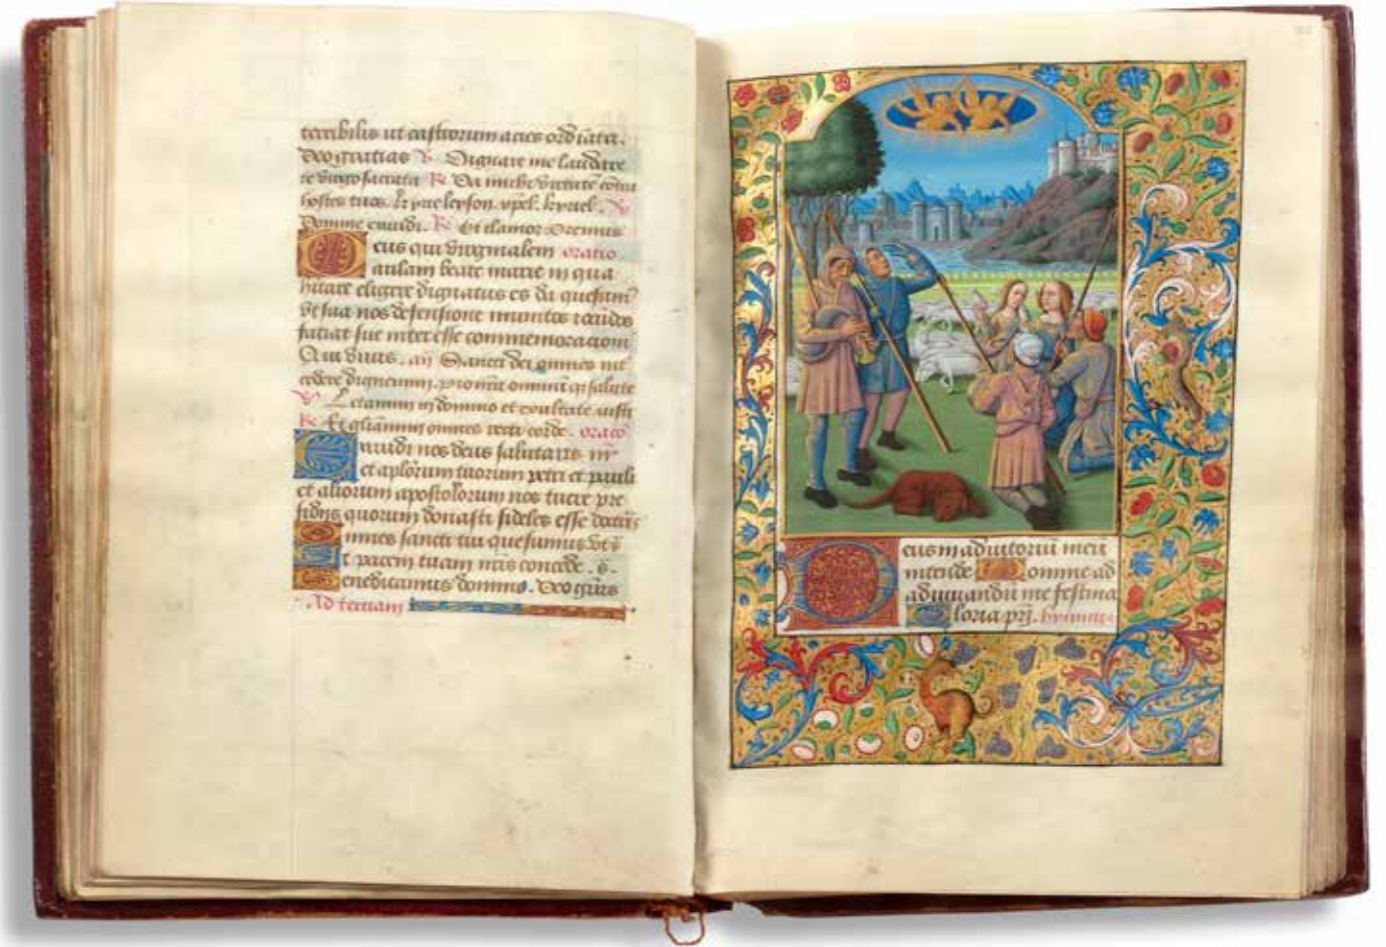 terribilis ut castrorum acies ordiata.
Deo gratias ℣ Dignare me laudare
te virgo sacrata ℟ Da michi virtute cont
hostes tuos. kyrieleyson. xpel. kyriel. ℣
Domine exaudi. ℟ Et clamor Oremus
Deus qui virginalem oratio
aulam beate marie in qua
bitare eligere dignatus es da quesum
ut sua nos defensione munitos iocūdos
faciat sue interesse commemoracioni
Qui vivis. añ Sancti dei omnes int
cedere dignemini. pro nr̄a omniūq̄ salute
℣ Letamini in domino et exultate iusti
℟ Et gloriamini omnes recti corde. oratō
Exaudi nos deus salutaris nr̄
et apl̄orum tuorum petri et pauli
et aliorum apostolorum nos tuere pre
sidijs quorum donasti fideles esse doct
Omnes sancti tui quesumus
Et pacem tuam nr̄is concede.
Benedicamus domino. Deo gr̄as
Ad terciam
Deus in adiutoriū meū
intende Domine ad
adiuvandū me festina
Gloria pr̄i. hymnus